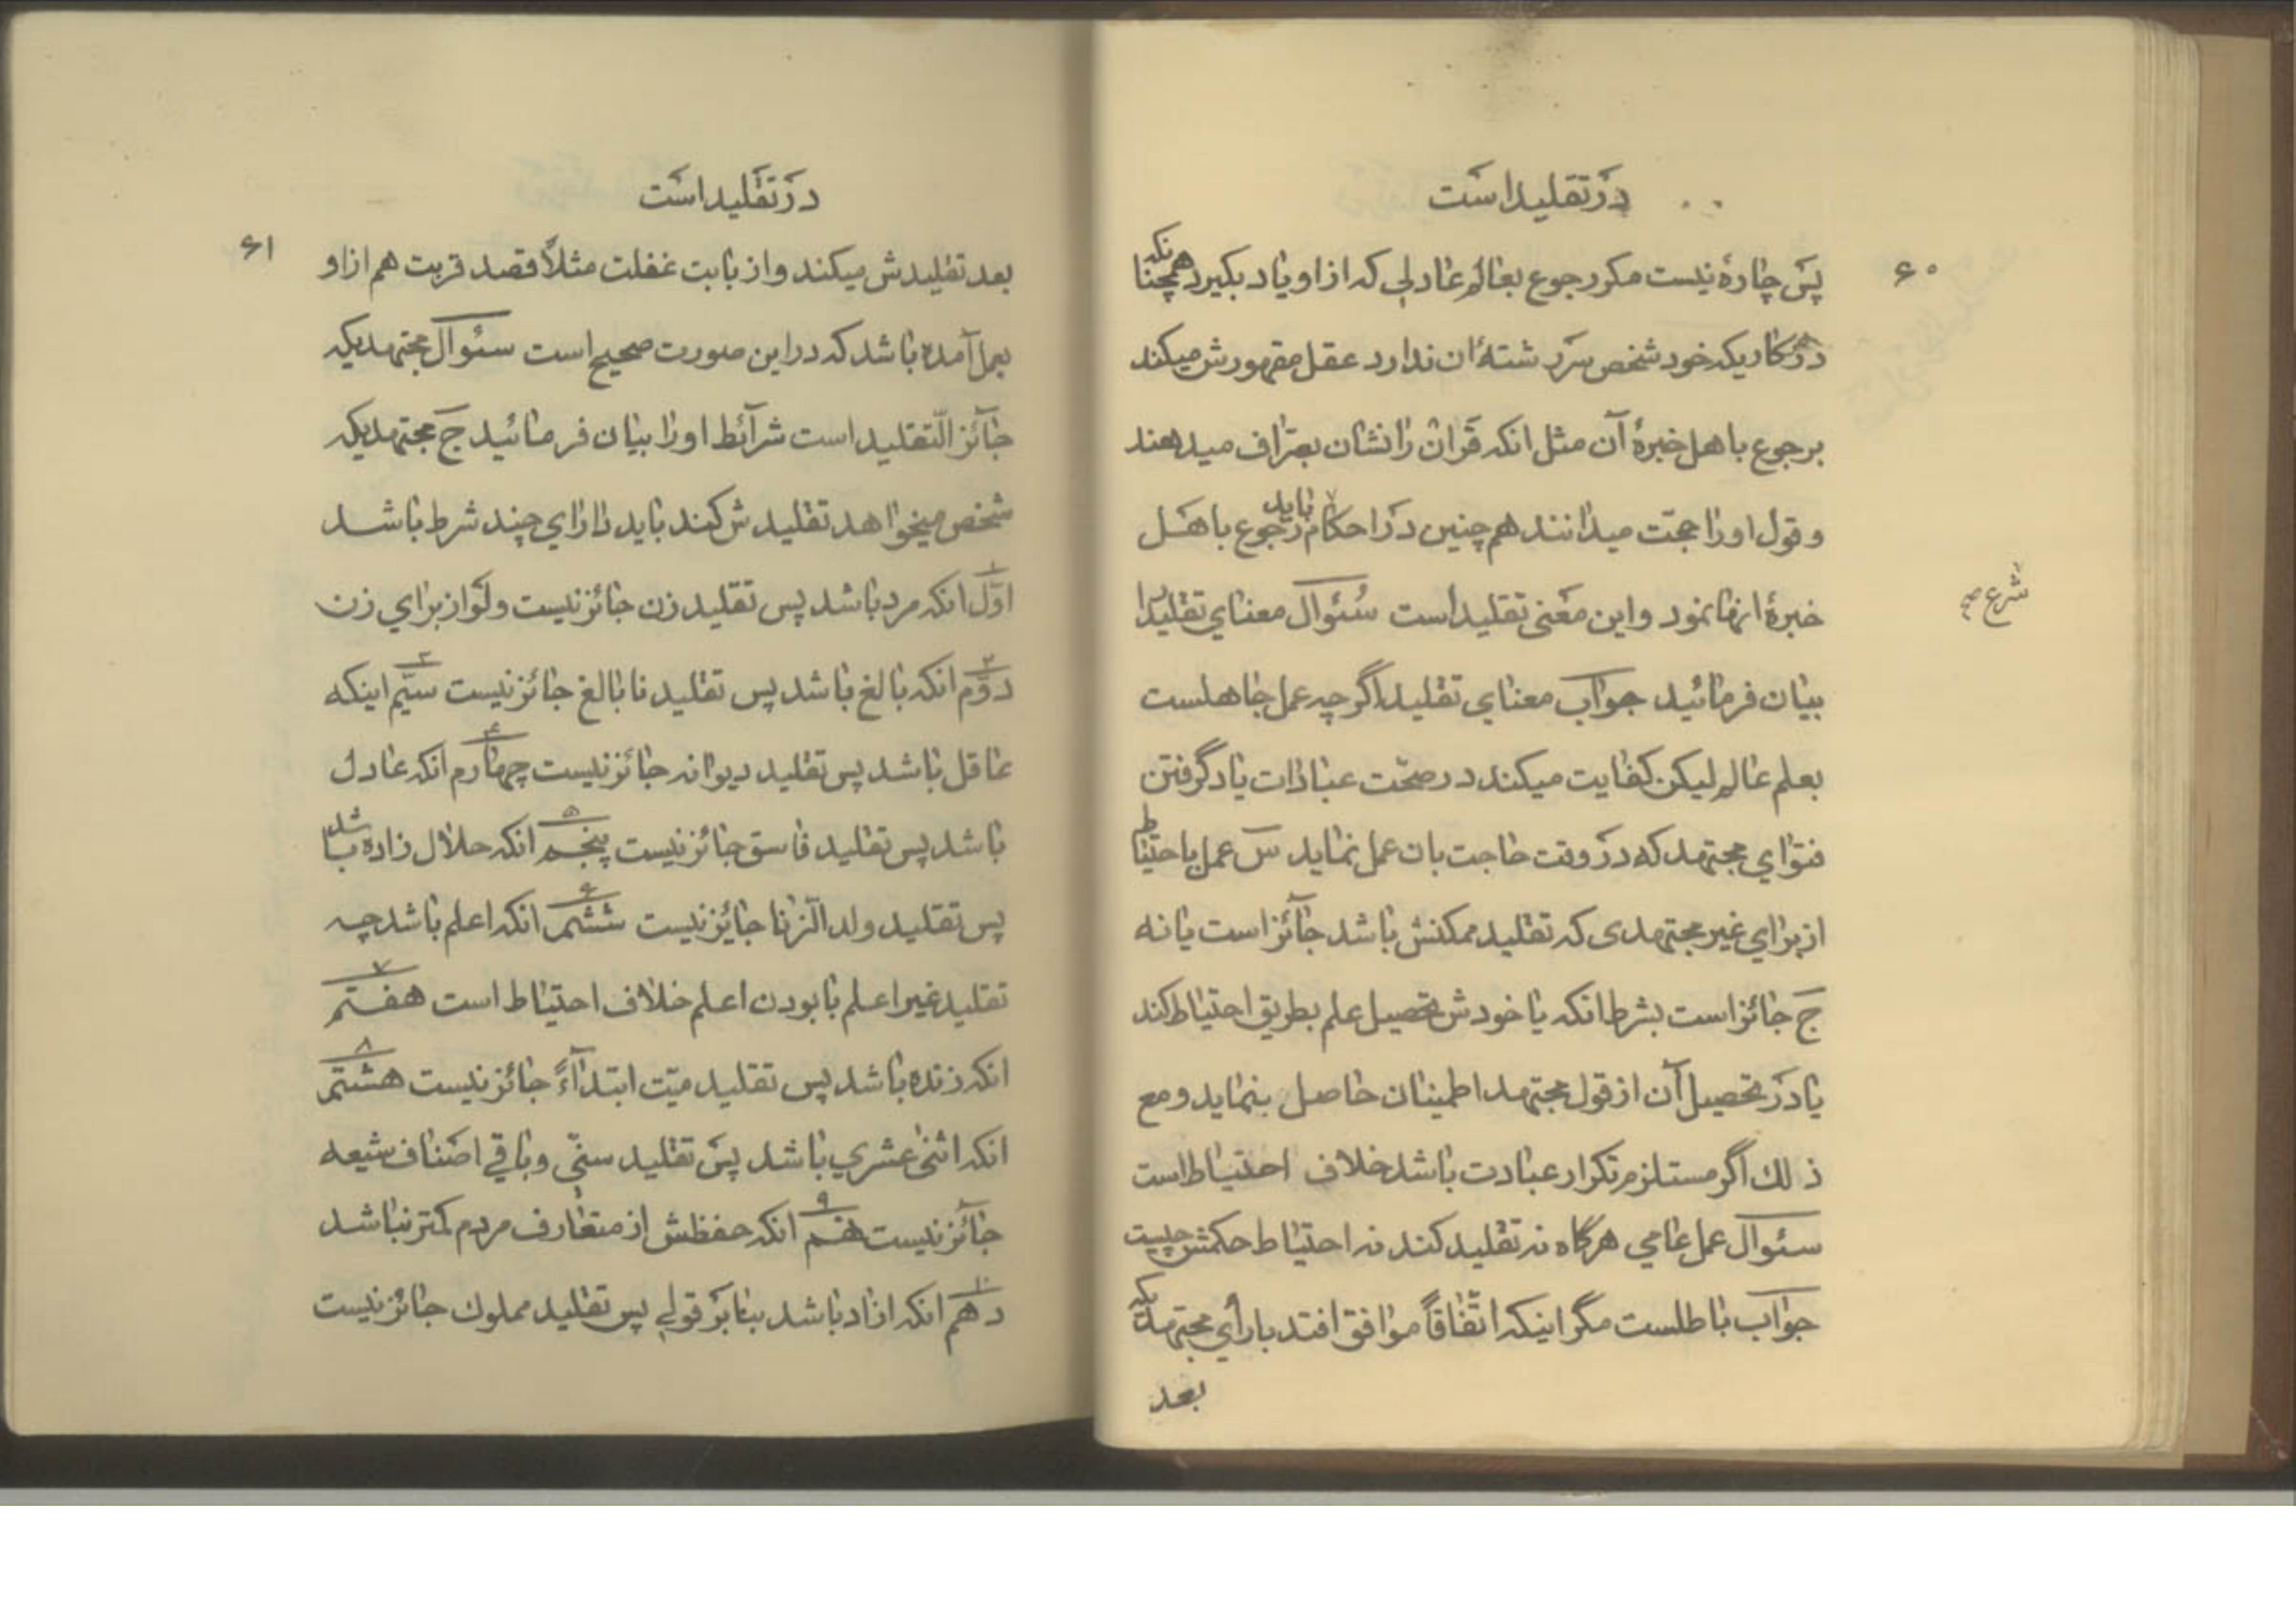 در تقلید است
۶۰
پس چارهٔ نیست مکر رجوع بعالم عادلی که از او یاد بکیرد همچنانکه
در کاریکه خود شخص سررشتهٔ ان ندارد عقل مقهورش میکند
برجوع باهل خبرهٔ آن مثل انکه قران را نشان بصراف میدهند
و قول او را حجت میدانند هم چنین در احکام باید رجوع باهل
شرع صح
خبرهٔ انها نمود و این معنی تقلید است سئوال معنای تقلید را
بیان فرمائید جواب معنای تقلید اگرچه عمل جاهلست
بعلم عالم لیکن کفایت میکند در صحّت عبادات یاد گرفتن
فتوای مجتهد که در وقت حاجت بان عمل نماید س عمل باحتیاط
از برای غیر مجتهدی که تقلید ممکنش باشد جائز است یا نه
ج جائز است بشرط انکه یا خودش تحصیل علم بطریق احتیاط کند
یا در تحصیل آن از قول مجتهد اطمینان حاصل بنماید و مع
ذلك اگر مستلزم تکرار عبادت باشد خلاف احتیاط است
سئوال عمل عامی هرگاه نه تقلید کند نه احتیاط حکمش چیست
جواب باطلست مگر اینکه اتّفاقاً موافق افتد با رأی مجتهدیکه
بعد
در تقلید است
۶۱
بعد تقلیدش میکند و از بابت غفلت مثلاً قصد قربت هم از او
بعمل آمده باشد که در این صورت صحیح است سئوال مجتهدیکه
جائز التّقلید است شرائط او را بیان فرمائید ج مجتهدیکه
شخص میخواهد تقلیدش کند باید دارای چند شرط باشد
۱ اوّل انکه مرد باشد پس تقلید زن جائز نیست و لو از برای زن
۲ دوّم انکه بالغ باشد پس تقلید نابالغ جائز نیست ۳ سیّم اینکه
عاقل باشد پس تقلید دیوانه جائز نیست ۴ چهارم انکه عادل
باشد پس تقلید فاسق جائز نیست ۵ پنجم انکه حلال زاده باشد
پس تقلید ولد الّزنا جایز نیست ۶ ششم انکه اعلم باشد چه
تقلید غیر اعلم با بودن اعلم خلاف احتیاط است ۷ هفتم
انکه زنده باشد پس تقلید میّت ابتداءً جائز نیست ۸ هشتم
انکه اثنی عشری باشد پس تقلید سنّی و باقی اصناف شیعه
جائز نیست ۹ نهم انکه حفظش از متعارف مردم کمتر نباشد
۱۰ دهم انکه ازاد باشد بنا بر قولی پس تقلید مملوك جائز نیست